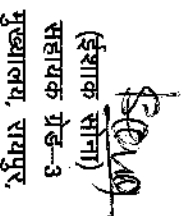 (ईशाक सोना)
सहायक ग्रेड–3
मुख्यालय, रायपुर,